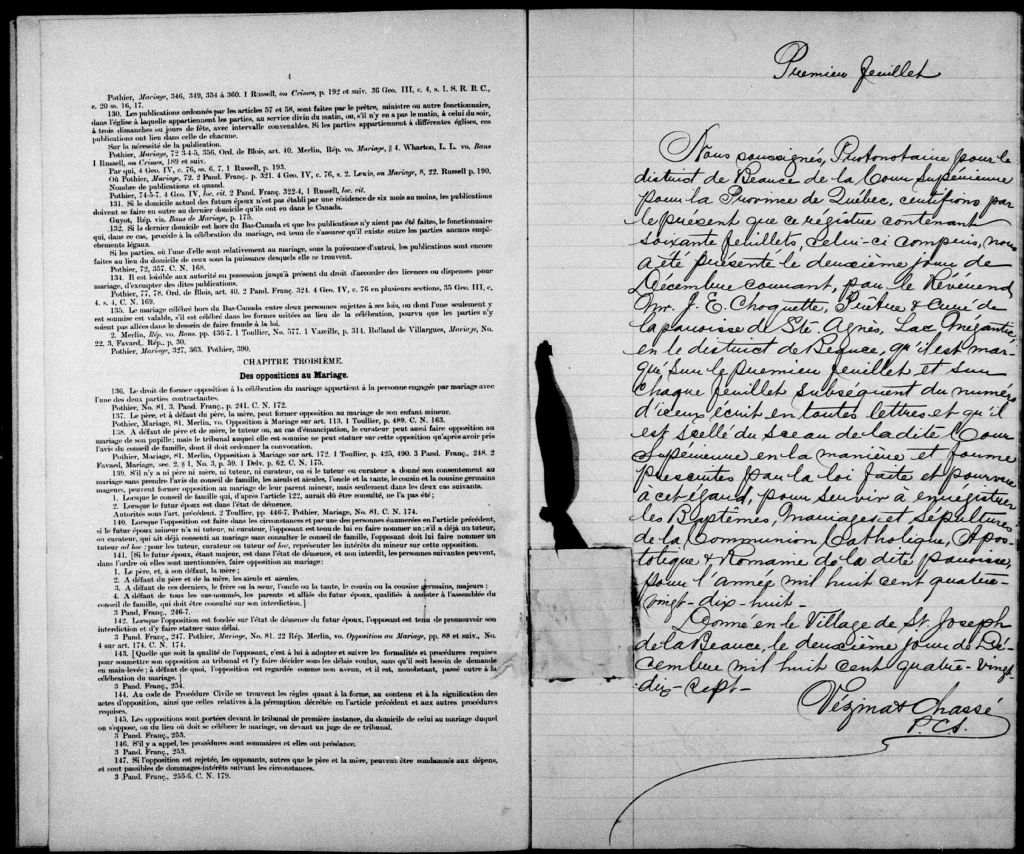 Pothier, Mariage, 346, 349, 354 à 360. 1 Russell, on Crimes, p. 192 et suiv. 36 Geo. III, c. 4, s. 1. S. R. B. C.,
c. 20 ss. 16, 17.
130. Les publications ordonnés par les articles 57 et 58, sont faites par le prêtre, ministre ou autre fonctionnaire,
dans l'église à laquelle appartiennent les parties, au service divin du matin, ou, s'il n'y en a pas le matin, à celui du soir,
à trois dimanches ou jours de fête, avec intervalle convenables. Si les parties appartiennent à différentes églises, ces
publications ont lieu dans celle de chacune.
Sur la nécessité de la publication.
Pothier, Mariage, 72 3-4-5, 356, Ord. de Blois, art. 40. Merlin, Rép. vo. Mariage, § 4. Wharton, L. L. vo. Bans
1 Russell, on Crimes, 189 et suiv.
Par qui, 4 Geo. IV, c. 76, ss. 6, 7. 1 Russell, p. 193.
Où Pothier, Mariage, 72. 2 Pand. Franç. p. 321. 4 Geo. IV, c. 76, s. 2. Lewis, on Mariage, 8, 22. Russell p. 190.
Nombre de publications et quand.
Pothier, 74-5-7. 4 Geo. IV, loc. cit. 2 Pand. Franç. 322-4, 1 Russell, loc. cit.
131. Si le domicile actuel des futurs époux n'est pas établi par une résidence de six mois au moins, les publications
doivent se faire en outre au dernier domicile qu'ils ont eu dans le Canada.
Guyot, Rép. vis. Bans de Mariage, p. 175.
132. Si le dernier domicile est hors du Bas-Canada et que les publications n'y aient pas été faites, le fonctionnaire
qui, dans ce cas, procède à la célébration du mariage, est tenu de s'assurer qu'il existe entre les parties aucuns empê-
chements légaux.
Si les parties, ou l'une d'elle sont relativement au mariage, sous la puissance d'autrui, les publications sont encore
faites au lieu du domicile de ceux sous la puissance desquels elle se trouvent.
Pothier, 72, 357. C. N. 168.
134. Il est loisible aux autorité en possession jusqu'à présent du droit d'accorder des licences ou dispenses pour
mariage, d'exempter des dites publications.
Pothier, 77, 78, Ord. de Blois, art. 40. 2 Pand. Franç. 324. 4 Geo. IV, c. 76 en plusieurs sections, 35 Geo. III, c.
4, s. 4, C. N. 169.
135. Le mariage célébré hors du Bas-Canada entre deux personnes sujettes à ses lois, ou dont l'une seulement y
est soumise est valable, s'il est célébré dans les formes usitées au lieu de la célébration, pourvu que les parties n'y
soient pas allées dans le dessein de faire fraude à la loi.
2. Merlin, Rép. vo. Bans, pp. 436-7. 1 Toullier, No. 577. 1 Vazeille, p. 314, Rolland de Villargues, Mariage, No.
22, 3. Favard, Rép., p. 30.
Pothier, Mariage, 327, 363. Pothier, 390.
CHAPITRE TROISIÈME.
Des oppositions au Mariage.
136. Le droit de former opposition à la célébration du mariage appartient à la personne engagée par mariage avec
l'une des deux parties contractantes.
Pothier, No. 81. 3, Pand. Franç., p. 241. C. N. 172.
137. Le père, et à défaut du père, la mère, peut former opposition au mariage de son enfant mineur.
Pothier, Mariage, 81. Merlin, vo. Opposition à Mariage sur art. 113. 1 Toullier, p. 489. C. N. 163.
138. A défaut de père et de mère, le tuteur ou, au cas d'émancipation, le curateur peut aussi faire opposition au
mariage de son pupille; mais le tribunal auquel elle est soumise ne peut statuer sur cette opposition qu'après avoir pris
l'avis du conseil de famille, dont il doit ordonner la convocation.
Pothier, Mariage, 81. Merlin, Opposition à Mariage sur art. 172. 1 Toullier, p. 425, 490. 3 Pand. Franç., 248. 2
Favard, Mariage, sec. 2, § 1, No. 3, p. 59. 1 Delv. p. 62, C. N. 175.
139. S'il n'y a ni père ni mère, ni tuteur, ni curateur, ou si le tuteur ou curateur a donné son consentement au
mariage sans prendre l'avis du conseil de famille, les aieuls et aieules, l'oncle et la tante, le cousin et la cousine germains
majeurs, peuvent former opposition au mariage de leur parent mineur, mais seulement dans les deux cas suivants.
1. Lorsque le conseil de famille qui, d'après l'article 122, aurait dû être consulté, ne l'a pas été;
2. Lorsque le futur époux est dans l'état de démence.
Autorités sous l'art. précédent. 2 Toullier, pp 446-7. Pothier, Mariage, No. 81. C. N. 174.
140. Lorsque l'opposition est faite dans les circonstances et par une des personnes énumerées en l'article précédent,
si le futur époux mineur n'a ni tuteur, ni curateur, l'opposant est tenu de lui en faire nommer un; s'il a déjà un tuteur,
ou curateur, qui ait déjà consenti au mariage sans consulter le conseil de famille, l'opposant doit lui faire nommer un
tuteur ad hoc; pour les tuteur, curateur ou tuteur ad hoc, représenter les intérêts du mineur sur cette opposition.
141. [Si le futur époux, étant majeur, est dans l'état de démence, et non interdit, les personnes suivantes peuvent,
dans l'ordre où elles sont mentionnées, faire opposition au mariage:
1. Le père, et, à son défaut, la mère;
2. A défaut du père et de la mère, les aïeuls et aïeules.
3. A défaut de ces derniers, le frère ou la sœur, l'oncle ou la tante, le cousin ou la cousine germains, majeurs;
4. A défaut de tous les sus-nommés, les parents et alliés du futur époux, qualifiés à assister à l'assemblée du
conseil de famille, qui doit être consulté sur son interdiction.]
3 Pand. Franç., 246-7.
142. Lorsque l'opposition est fondée sur l'état de démence du futur époux, l'opposant est tenu de promouvoir son
interdiction et d'y faire statuer sans délai.
3 Pand. Franç., 247. Pothier, Mariage, No. 81. 22 Rép. Merlin, vo. Opposition au Mariage, pp. 88 et suiv., No.
4 sur art. 174. C. N. 174.
143. [Quelle que soit la qualité de l'opposant, c'est à lui à adopter et suivre les formalités et procédures requises
pour soumettre son opposition au tribunal et l'y faire décider sous les délais voulus, sans qu'il soit besoin de demande
en main-levée; à défaut de quoi, l'opposition est regardée comme non avenu, et il est, nonobstant, passé outre à la
célébration du mariage.]
3 Pand. Franç., 254.
144. Au code de Procédure Civile se trouvent les règles quant à la forme, au contenu et à la signification des
actes d'opposition, ainsi que celles relatives à la péremption décrétée en l'article précédent et aux autres procédures
requises.
145. Les oppositions sont portées devant le tribunal de première instance, du domicile de celui au mariage duquel
on s'oppose, ou du lieu où doit se célébrer le mariage, ou devant un juge de ce tribunal.
3 Pand. Franç., 253.
146. S'il y a appel, les procédures sont sommaires et elles ont préséance.
3 Pand. Franç., 253.
147. Si l'opposition est rejetée, les opposants, autres que le père et la mère, peuvent être condamnés aux dépens,
et sont passibles de dommages-intérêts suivant les circonstances.
3 Pand. Franç., 255-6. C. N. 179.
Premier feuillet
Nous soussignés, Protonotaire pour le
district de Beauce de la Cour Supérieure
pour la Province de Québec, certifions par
le présent que ce registre contenant
soixante feuillets, celui-ci compris, nous
a été présenté le deuxième jour de
Décembre courant, par le Révérend
Mr. J. E. Choquette, Prêtre & Curé de
la paroisse de Ste. Agnès, Lac Mégantic,
en le district de Beauce, qu'il est mar-
qué sur le premier feuillet et sur
chaque feuillet subséquent du numéro
d'iceux écrit en toutes lettres et qu'il
est scellé du sceau de la dite Cour
Supérieure en la manière et forme
prescrites par la loi faite et pourvue
à cet égard, pour servir à enregistrer
les Baptêmes, Mariages et Sépultures
de la Communion Catholique, Apos-
tolique & Romaine de la dite paroisse,
pour l'année mil huit cent quatre-
vingt-dix-huit.-
Donné en le Village de St. Joseph
de la Beauce, le deuxième jour de Dé-
cembre mil huit cent quatre-vingt-
dix-sept-
Vézina & Chassé
P.C.S.